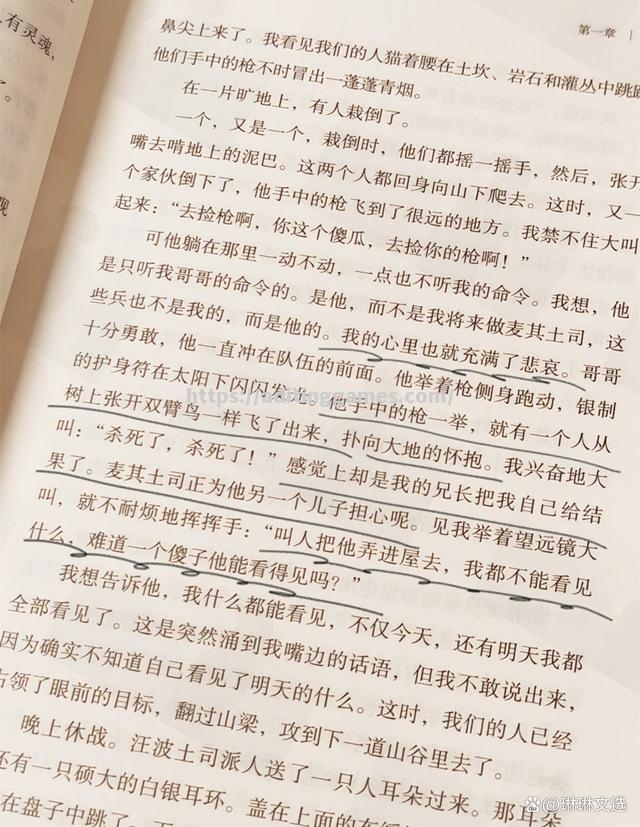 有灵魂,
。
观
第一章
鼻尖上来了。我看见我们的人猫着腰在土坎、岩石和灌丛中跳跃
他们手中的枪不时冒出一蓬蓬青烟。
在一片旷地上,有人栽倒了。
一个,又是一个,栽倒时,他们都摇一摇手,然后,张开
嘴去啃地上的泥巴。这两个人都回身向山下爬去。这时,又一
个家伙倒下了,他手中的枪飞到了很远的地方。我禁不住大叫
起来:“去捡枪啊,你这个傻瓜,去捡你的枪啊!”
可他躺在那里一动不动,一点也不听我的命令。我想,他
是只听我哥哥的命令的。是他,而不是我将来做麦其土司,这
些兵也不是我的,而是他的。我的心里也就充满了悲哀。哥哥
十分勇敢,他一直冲在队伍的前面。他举着枪侧身跑动,银制
的护身符在太阳下闪闪发光。他手中的枪一举,就有一个人从
树上张开双臂鸟一样飞了出来,扑向大地的怀抱。我兴奋地大
叫:“杀死了,杀死了!”感觉上却是我的兄长把我自己给结
果了。麦其土司正为他另一个儿子担心呢。见我举着望远镜大
叫,就不耐烦地挥挥手:“叫人把他弄进屋去,我都不能看见
什么,难道一个傻子他能看得见吗?”
我想告诉他,我什么都能看见,不仅今天,还有明天我都
全部看见了。这是突然涌到我嘴边的话语,但我不敢说出来,
因为确实不知道自己看见了明天的什么。这时,我们的人已经
占领了眼前的目标,翻过山梁,攻到下一道山谷里去了。
晚上休战。汪波土司派人送了一只人耳朵过来。那耳朵
还有一只硕大的白银耳环。盖在上面的布
在盘子中跳了一下
百家号/琳琳文选